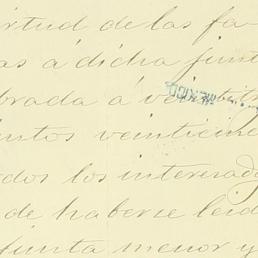 irtud de las fa-
as á dicha junt
brada á veintitr
ientos veinticinc
dos los interesad
de haberse leid
junta menor y